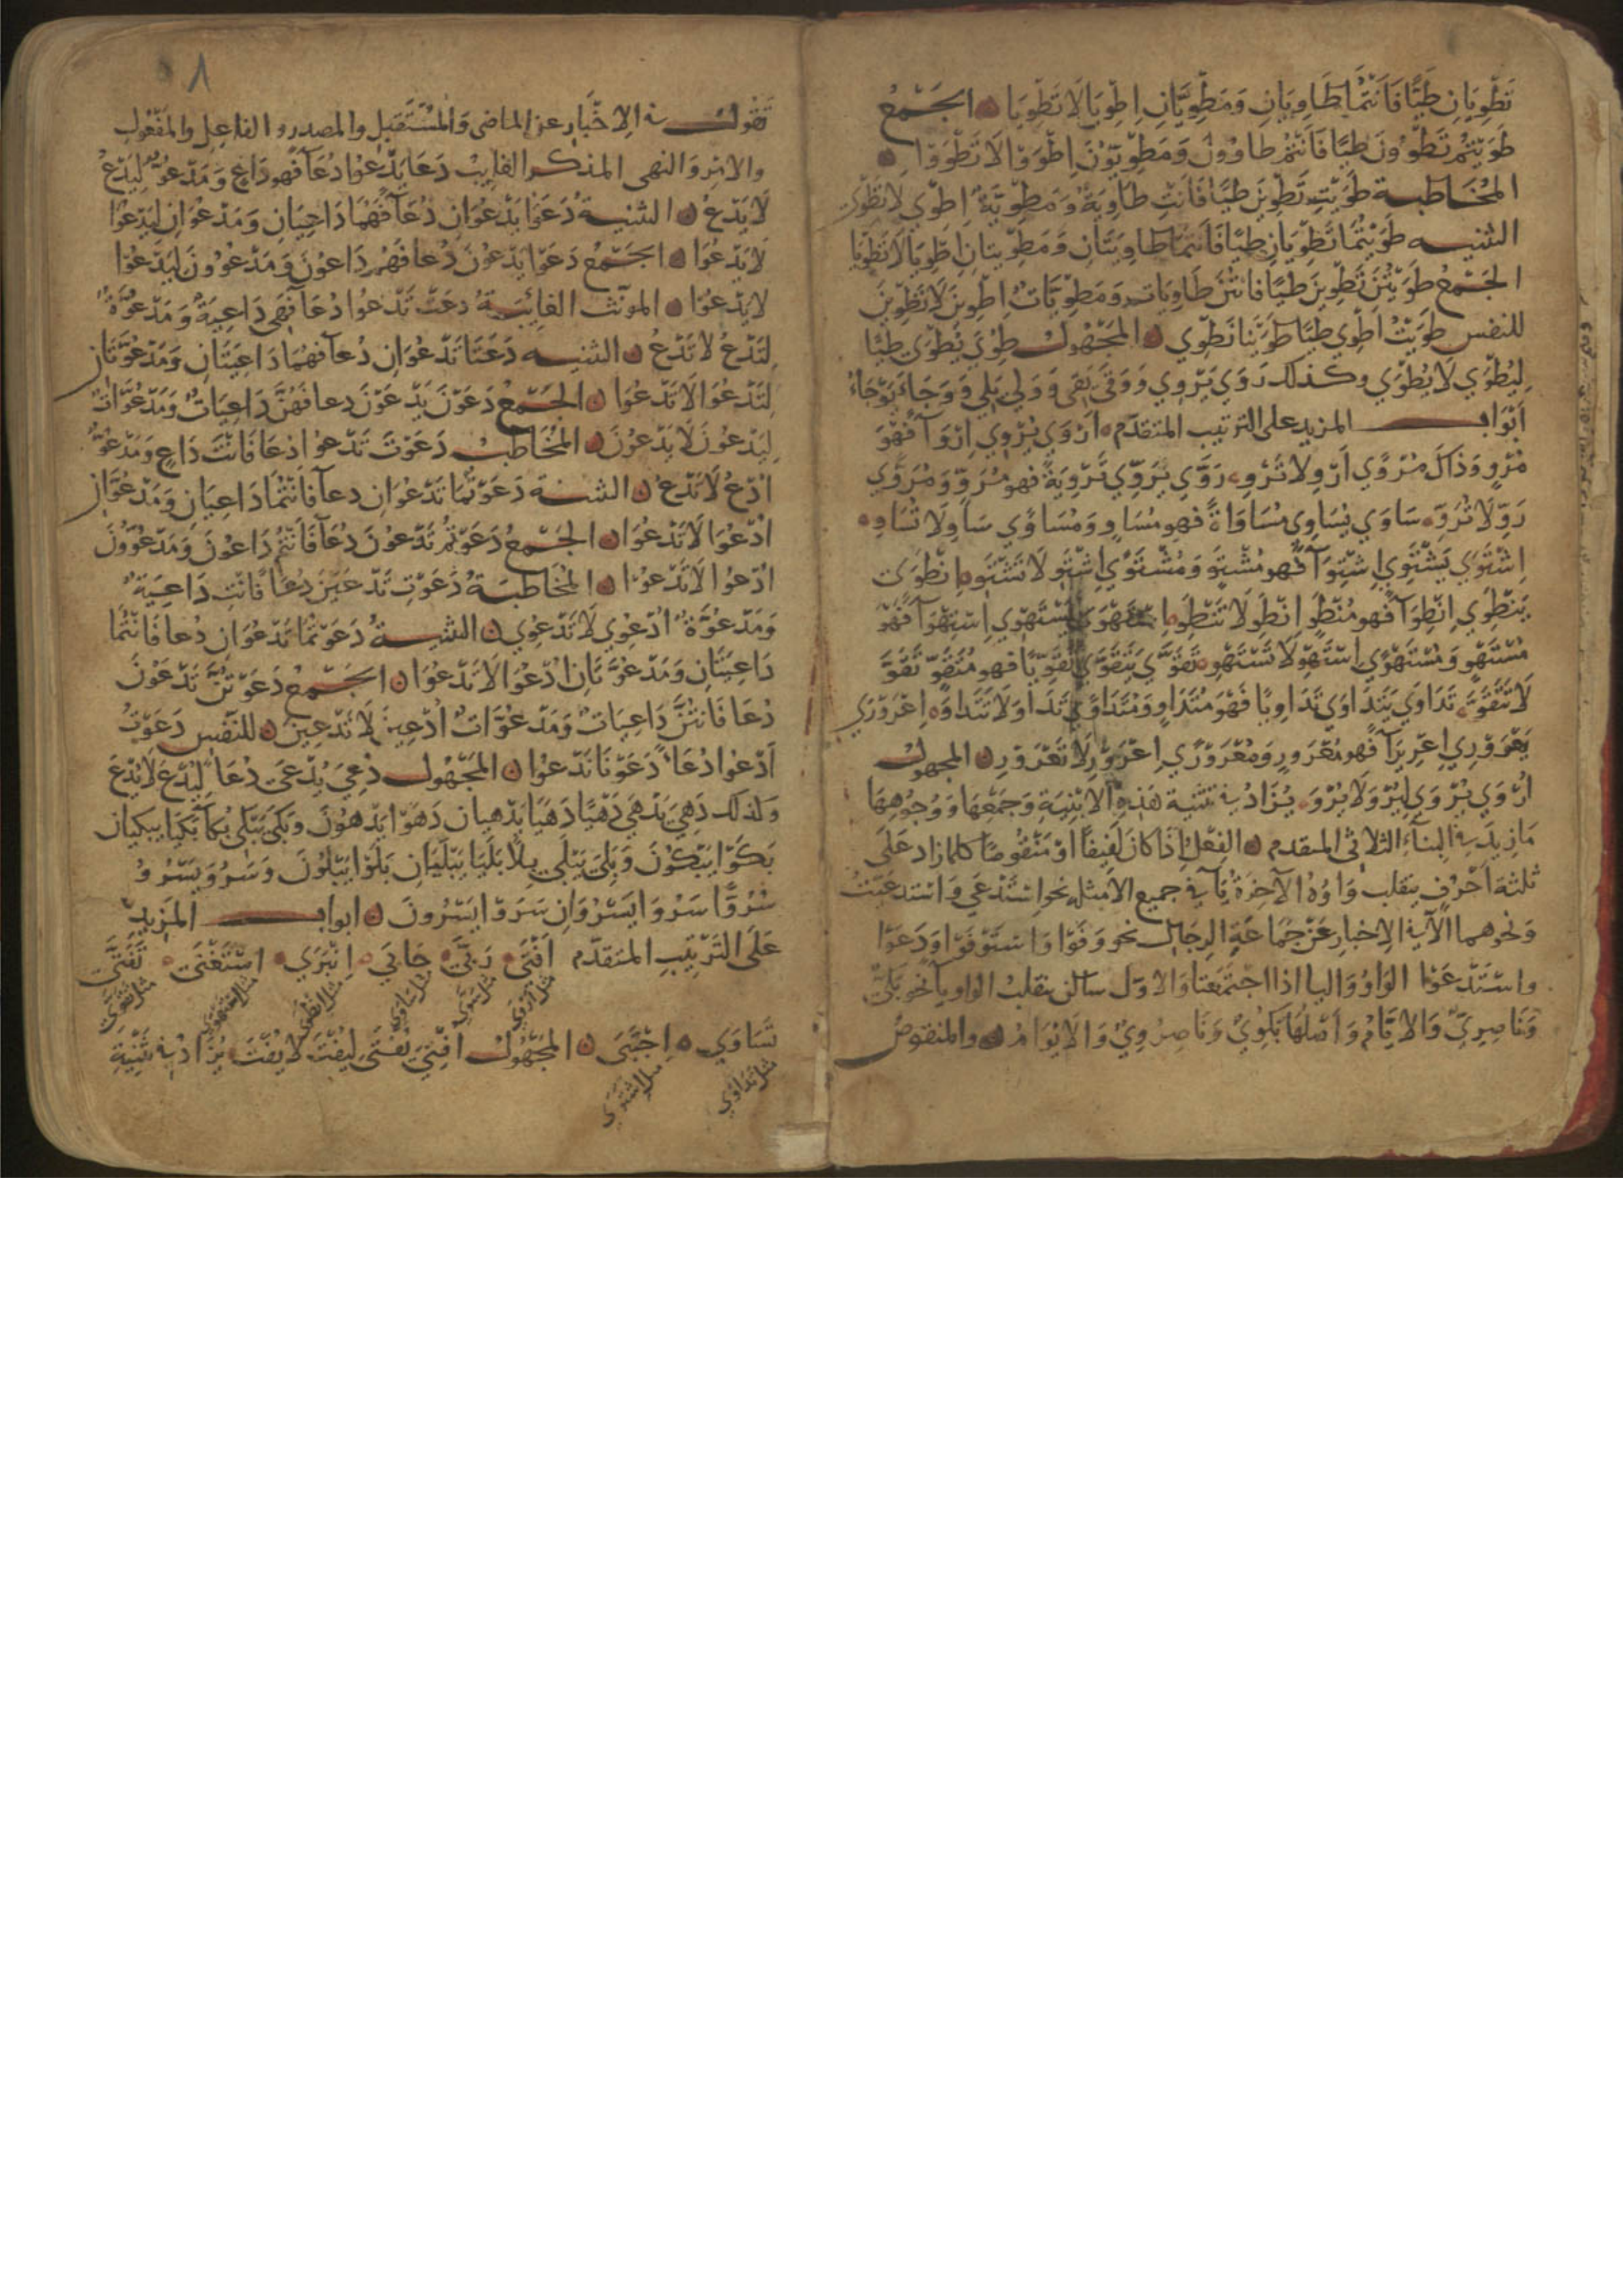 تَطْوِيَانِ طَيًّا فَأَنْتُمَا طَاوِيَانِ وَمَطْوِيَّانِ اِطْوِيَا لَا تَطْوِيَا الجَمْعُ
طَوَيْتُمْ تَطْوُونَ طَيًّا فَأَنْتُمْ طاوُونَ وَمَطْوِيّوُنَ اِطْوَوْا لَا تَطْوَوْا
المُخَاطبة طَوَيْتِ تَطْوِينَ طَيًّا فَأَنْتِ طَاوِيَةٌ وَمَطْوِيَّةٌ اِطْوِي لَا تَطْوِي
التثنيه طَوَيْتُمَا تَطْوِيَانِ طَيًّا فَأَنْتُمَا طَاوِيَتَانِ وَمَطْوِيّتَانِ اِطْوِيَا لَا تَطْوِيَا
الجَمْعُ طَوَيْتُنَّ تَطْوِينَ طَيًّا فَانْتُنَّ طَاوِيَات وَمَطْوِيَّاتٌ اِطْوِينَ لَا تَطْوِينَ
للنفس طَوَيْتُ اَطْوِي طَيًّا طَوَيْنَا نَطْوِي المَجْهُول طُوِيَ يُطْوَى طَيًّا
لِيُطْوَي لَا يُطْوَي وكذلك رَوَي يَرْوِي وَوَقَى يَقِى وَوَلِي يَلِي وَوَجَاءَ يَوْجَاءُ
اَبْوَاب المزيد على الترتيب المتقدّم اَرْوَي يُرْوِي اِرْوَآءً فَهُوَ
مُرْوٍ وَذَاكَ مُرْوًي اَرْوِ لَا تُرْوِ رَوَّي يُرَوِّي تَرْوِيَةً فهو مُرَوٍّ وَمُرَوًّي
رَوِّ لَا تُرَوِّ سَاوَي يُسَاوِي مُسَاوَاةً فهو مُسَاوٍ وَمُسَاوًي سَاوِ لَا تُسَاوِ
اِشْتَوَي يَشْتَوِي اِشْتِوَآءً فهو مُشْتَوٍ وَمُشْتَوًي اِشْتَوِ لَا تَشْتَوِ اِنْطَوَى
يَنْطَوِي اِنْطِوَآءً فهو مُنْطَوٍ اِنْطَوِ لَا تَنْطَوِ اِسْتَهْوَي يَسْتَهْوِي اِسْتِهْوَآءً فَهُوَ
مُسْتَهْوٍ وَمُسْتَهْوًي اِسْتَهْوِ لَا تَسْتَهْوِ تَقَوَّي يَتَقَوَّي تَقَوِّيًا فهو مُتَقَوٍّ تَقَوَّ
لَا تَتَقَوَّ تَدَاوَي يَتَدَاوَي تَدَاوِيًا فَهُوَ مُتَدَاوٍ وَمُتَدَاوًي تَدَاوَ وَلَا تَتَدَاوَ اِعْرَوْرَي
يَعْرَوْرِي اِعْرِيرَآءً فهو مُعْرَورٍ وَمُعْرَوْرًي اِعْرَوْرِ لَا تَعْرَوْرِ المجهول
اُرْوِي يُرْوَي لِيُرْوَ لَا يُرْوَ يُزَادُ في تَثْنِيَة هَذِهِ الابْنِيَةِ وَجَمْعِهَا وَوُجُوهِهَا
مَا زِيدَ في البِنَاءِ الثلاثي المتقدم الفِعْلُ اِذَا كانَ لَفِيفًا اَوْ مَنْقُوصًا كلما زاد عَلَى
ثلثة اَحْرُفٍ ينقلب وَاوُهُ الآخِرَةُ يَآءً في جميع الامثله نحو اِسْتَدْعَي وَاسْتدعَيْتُ
وَنحوهما الّا في الاِخبار عَنْ جَمَاعَةِ الرجَال نحو وَفَوْا وَاسْتَوْفَوْا وَدَعَوْا
واسْتَدْعَوْا الوَاوُ وَاليا اذا اجتَمَعَتا وَالاوّل ساكن ينقلب الواو يآء نحو بَكِيٌّ
وَنَاصِرِيَّ وَالايَّامُ وَاَصْلُهَا بَكُوْيٌ وَنَاصِرُوِيْ وَالايْوَامُ والمنقوصُ
٨
تَقُول في الاِخْبَارِ عن الماضى وَالمُسْتَقْبَلِ والمصدر والفاعِل والمَفْعُولِ
والامْرِ وَالنهى المذكر الغايِبْ دَعَا يَدْعوُا دُعَآءً فهو دَاعٍ وَمَدْعُوٌّ لِيَدْعُ
لَا يَدْعُ التثنية دَعَوَا يَدْعُوَانِ دُعَآءً فَهُمَا دَاعِيَانِ وَمَدْعُوَّانِ لِيَدْعُوَا
لَا يَدْعُوَا الجَمْعُ دَعَوْا يَدْعُونَ دُعَاءً فَهُمْ دَاعُونَ وَمَدْعُوُّونَ لِيَدْعُوْا
لا يَدْعُوا المونّث الغايِبَةُ دعَتْ تَدْعُوا دُعَآءً فَهِيَ دَاعِيَةٌ وَمَدْعُوَّةٌ
لِتَدْعُ لَا تَدْعُ التثنيه دَعَتَا تَدْعُوَانِ دُعآءً فهُمَا دَاعِيَتَانِ وَمَدْعُوَّتَانِ
لِتَدْعُوَا لَا تَدْعُوَا الجَمْعُ دَعَوْنَ يَدْعُوْنَ دعاءً فَهُنَّ دَاعِيَاتٌ وَمَدْعُوَّاتٌ
لِيَدْعُونَ لَا يَدْعُونَ المُخَاطَبْ دَعَوْتَ تَدْعُوا دُعَاءً فَانْتَ دَاعٍ وَمَدْعُوٌّ
اُدْعُ لَا تَدْعُ التثنية دَعَوْتُمَا تَدْعُوَانِ دعآءً فَأَنْتُمَا دَاعِيَانِ وَمَدْعُوَّانِ
اُدْعُوَا لَا تَدْعُوَا الجَمْعُ دَعَوْتُمْ تَدْعُونَ دُعَآءً فَأَنْتُمْ دَاعُونَ وَمَدْعُوُّونَ
اُدْعُوا لَا تَدْعُوْا المُخَاطبَةُ دَعَوْتِ تَدْعِيْنَ دُعَاءً فَانْتِ دَاعِيَةٌ
وَمَدْعُوَّةٌ اُدْعِوِي لَا تَدْعِوِي التثنيةُ دَعَوْتُمَا تَدْعُوَانِ دُعاءً فَأَنْتُمَا
دَاعِيَتَانِ وَمَدْعُوَّتَانِ اُدْعُوَا لَا تَدْعُوَا الجَمْعُ دَعَوْتُنَّ تَدْعُوْنَ
دُعَاءً فَانْتُنَّ دَاعِيَاتٌ وَمَدْعُوَّاتٌ اُدْعِينَ لَا تَدْعِينَ للنّفس دَعَوْتُ
اَدْعُوا دُعَاءً دَعَوْنَا نَدْعُوْا المَجْهُول دُعِيَ يُدْعَى دُعَاءً لِيُدْعَ لَا يُدْعَ
وَكذلك دَهِيَ يَدْهَي دَهْيًا دَهَيَا يَدْهيان دَهَوْا يَدْهوُنَ وَبَكَى يَبْكِي بُكآءً بَكَيَا يبكيان
بَكَوْا يَبْكُونَ وَبَلِيَ يَبْلَي بِلًا بَلَيَا يَبْلَيَانِ بَلَوْا يَبْلَوْنَ وَسَرُوَ يَسْرُوُ
سُرُوًّا سَرُوَا يَسْرُوَانِ سَرَوْا يَسْرُونَ ابواب المَزِيدِ
عَلَى التَرْتِيبِ المتَقَدّم اَفْتَى رَبَّى حَابَي اِنْبَرَي اسْتَغْنَى تَفَتَّى
مثل اَرْوَي مثل رَوَّي مثل سَاوَي مثل انطوَى مثل اسْتَهْوَي مثل تَقَوَّي
تَسَاوَي اِجْتَبَى المَجْهُول اُفْتِيَ يُفْتَى لِيُفْتَ لَا يُفْتَ يُزَادُ في تَثْنِيَةِ
مثل تَدَاوَي مثل اشْتَوَى